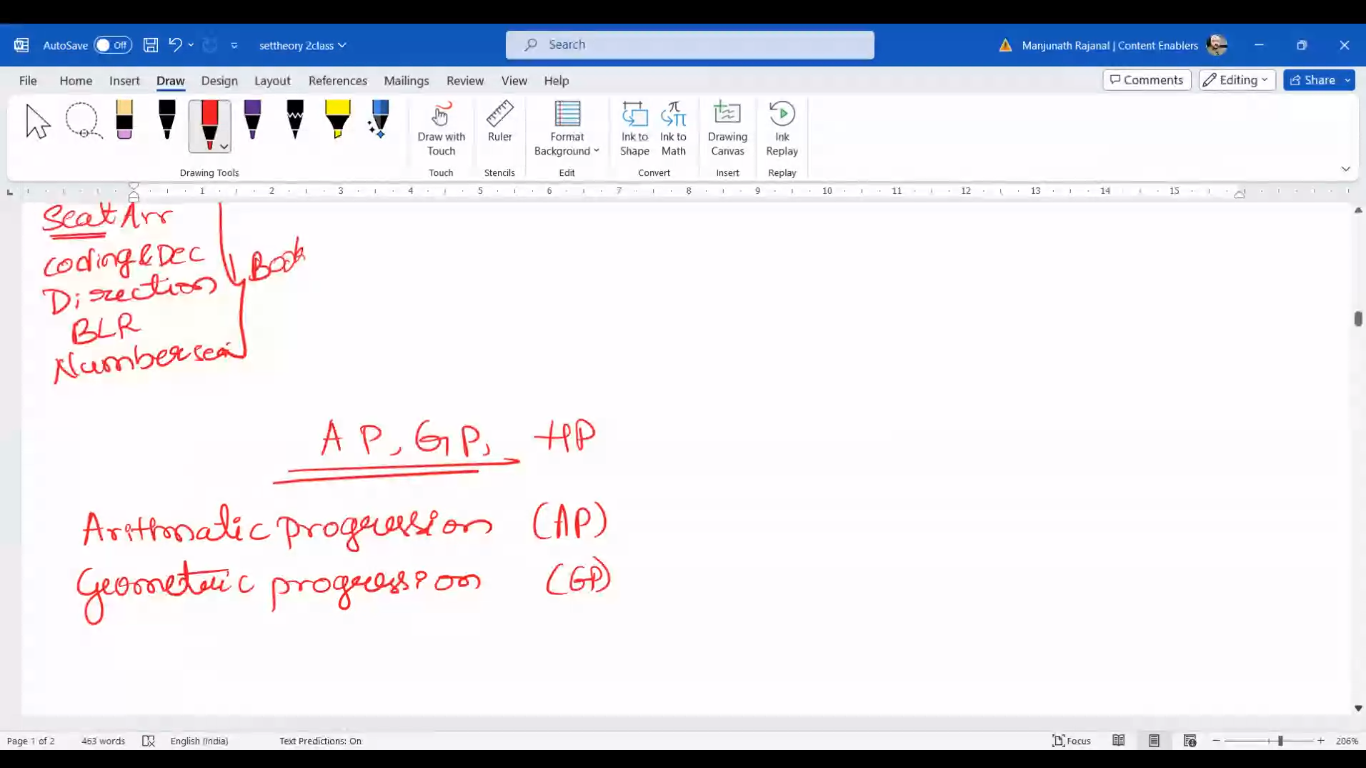 AutoSave Off settheory 2class Search Manjunath Rajanal | Content Enablers
File Home Insert Draw Design Layout References Mailings Review View Help Comments Editing Share
Draw with Touch Ruler Format Background Ink to Shape Ink to Math Drawing Canvas Ink Replay
Drawing Tools Touch Stencils Edit Convert Insert Replay
1 2 3 4 5 6 7 8 9 10 11 12 13 14 15
Seat Arr
Coding & Dec
Book
Direction
BLR
Number
AP, GP, HP
Arithmatic progression (AP)
Geometric progression (GP)
Page 1 of 2 463 words English (India) Text Predictions: On Focus 206%